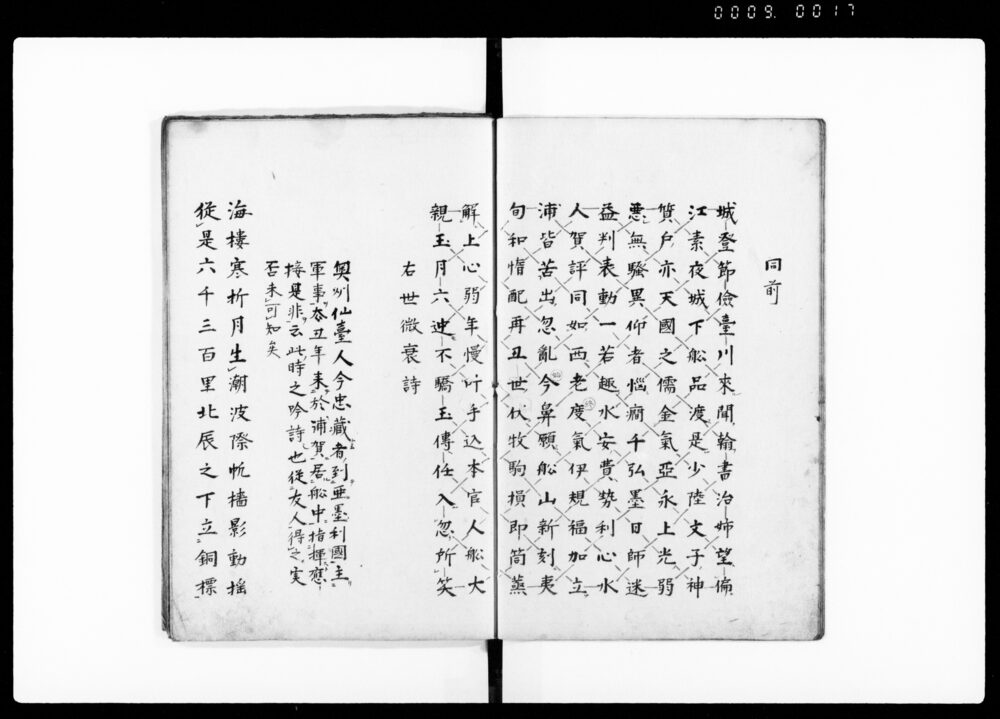 0009. 0017
同前
城登節儉臺川來聞翰書治姉望偏
江素夜城下船品渡是少陸文子神
箕戶亦天國之儒金氣亞永上光弱
悪無騷異仰者惱痾千弘墨日師迷
益判表動一若趣水安貴勢利心水
人賀評同如西老度氣伊規福加立
浦皆苦出忽亂今鼻願船山新刻夷
旬和惰配再丑世伏牧駒損即筒蒸
解上心弱年慢叶手込本官人船大
親玉月六迚不驕玉傳任入忽所笑
右世微衰詩
奥州仙臺人今忠藏者到亜墨利國主
軍事太丑年来於浦賀居船中指揮應
接是非云此時之吟詩也從友人得之実
否未可知矣
海樓寒折月生潮波際帆檣影動搖
從是六千三百里北辰之下立銅標